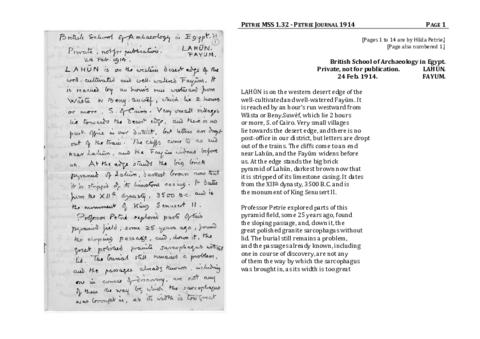 British School of Archaeology in Egypt.
Private, not for publication. LAHŪN.
24 Feb. 1914. FAYUM.
LAHŪN is on the western desert edge of the
well-cultivated and well-watered Fayūm. It
is reached by an hour's run westward from
Wāsta or Beny.Suwēf, which lie 2 hours
or more, S. of Cairo. Very small villages
lie towards the desert edge, and there is no
post-office in our district, but letters are dropt
out of the trains. The cliffs come to an end
near Lahūn, and the Fayūm widens before
us. At the edge stands the big brick
pyramid of Lahūn, darkest brown now that
it is stripped of its limestone casing. It dates
from the XIIth dynasty, 3500 B.C. and is
the monument of King Senusert II.
Professor Petrie explored parts of this
pyramid field, some 25 years ago, found
the sloping passage, and, down it, the
great polished granite sarcophagus without
lid. The burial still remains a problem,
and the passages already known, including
one in course of discovery, are not any
of them the way by which the sarcophagus
was brought in, as its width is too great
PETRIE MSS 1.32 - PETRIE JOURNAL 1914 PAGE 1
[Pages 1 to 14 are by Hilda Petrie.]
[Page also numbered 1.]
British School of Archaeology in Egypt.
Private, not for publication. LAHŪN.
24 Feb. 1914. FAYUM.
LAHŪN is on the western desert edge of the
well-cultivated and well-watered Fayūm. It
is reached by an hour's run westward from
Wāsta or Beny.Suwēf, which lie 2 hours
or more, S. of Cairo. Very small villages
lie towards the desert edge, and there is no
post-office in our district, but letters are dropt
out of the trains. The cliffs come to an end
near Lahūn, and the Fayūm widens before
us. At the edge stands the big brick
pyramid of Lahūn, darkest brown now that
it is stripped of its limestone casing. It dates
from the XIIth dynasty, 3500 B.C. and is
the monument of King Senusert II.
Professor Petrie explored parts of this
pyramid field, some 25 years ago, found
the sloping passage, and, down it, the
great polished granite sarcophagus without
lid. The burial still remains a problem,
and the passages already known, including
one in course of discovery, are not any
of them the way by which the sarcophagus
was brought in, as its width is too great